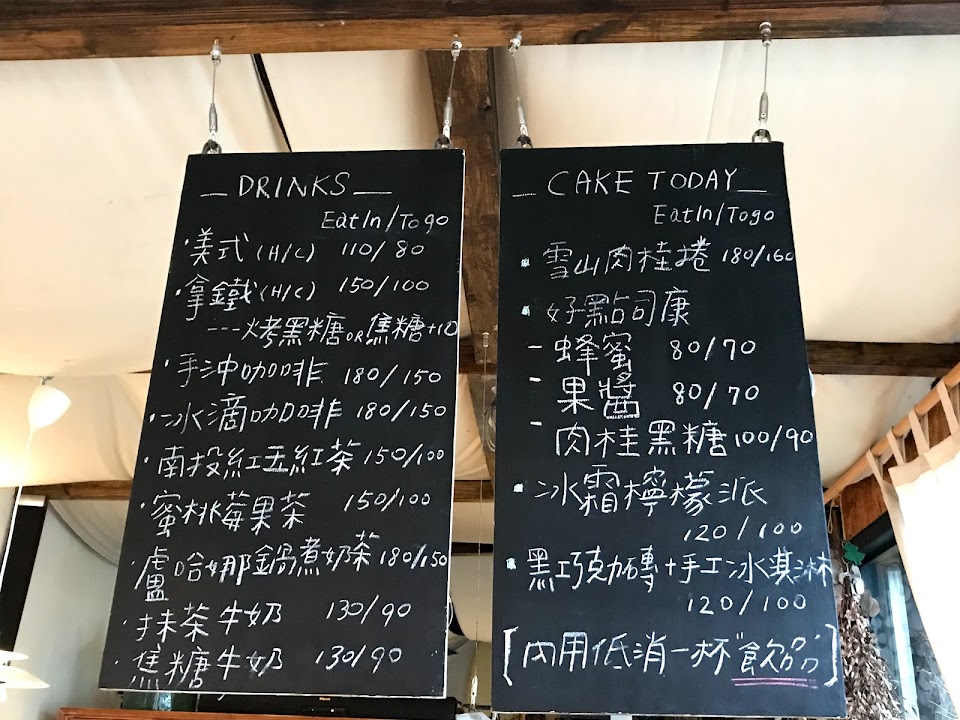 DRINKS
EatIn/Togo
·美式(H/C) 110/80
·拿鐵(H/C) 150/100
---烤黑糖OR焦糖+10
·手沖咖啡 180/150
·冰滴咖啡 180/150
·南投紅玉紅茶 150/100
·蜜桃莓果茶 150/100
·盧哈娜鍋煮奶茶 180/150
·抹茶牛奶 130/90
·焦糖牛奶 130/90
CAKE TODAY
EatIn/Togo
·雪山肉桂捲 180/160
·好點司康
-蜂蜜 80/70
-果醬 80/70
-肉桂黑糖 100/90
·冰霜檸檬派
120/100
·黑巧克力磚+手工冰淇淋
120/100
[內用低消一杯"飲品"]